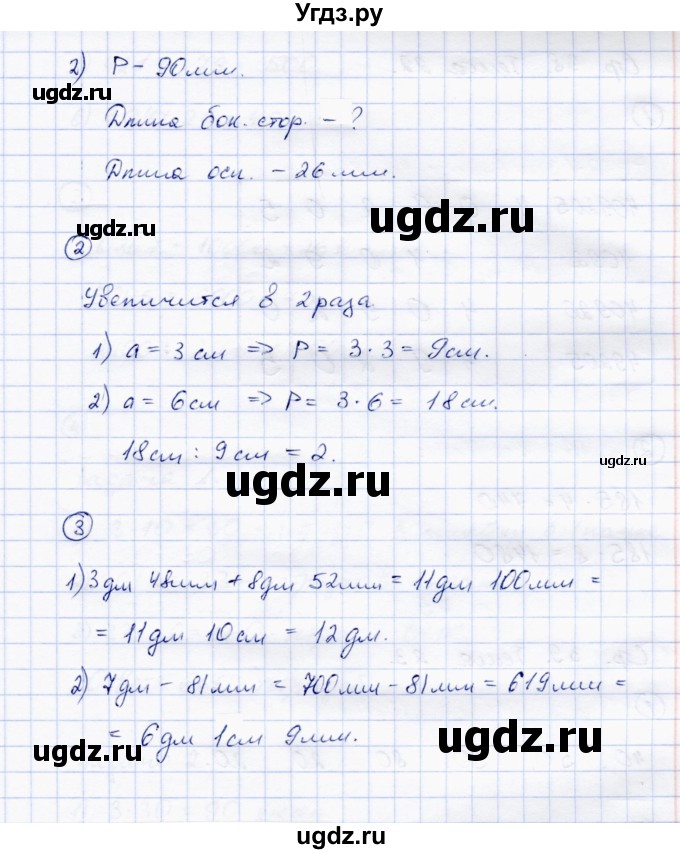 Угдз.ру
2) P - 90мм.
ugdz.ru
Длина бок. стор. - ?
Длина осн. - 26 мм.
ugdz.ru
ugdz.ru
2
Увеличится в 2 раза
1) a = 3 см => P = 3 · 3 = 9см.
ugdz.ru
2) a = 6см => P = 3 · 6 = 18 см.
18см : 9 см = 2.
ugdz.ru
ugdz.ru
3
1) 3 дм 48мм + 8дм 52мм = 11дм 100мм =
ugdz.ru
= 11дм 10см = 12дм.
2) 7дм - 81мм = 700мм - 81мм = 619мм =
= 6дм 1см 9мм.
ugdz.ru
ugdz.ru
ugdz.ru